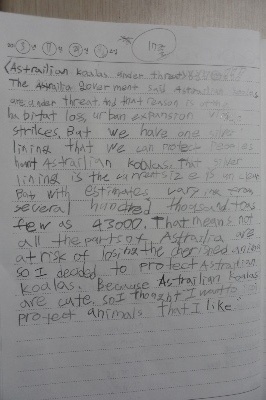 Astrailian koalas under threat
The Australia goverment said Astrailian koalas
are under threat. And that reason is
habitat loss urban expansion
strikes. But we have one silver
lining that we can protect
Astrailian koalas. that silver
lining is the current size
But with estimates varying from
several hundred thousand to as
few as 43000. That means not
all the parts of Astrailia are
at risk of losing the cherished animal
so I decided to protect Astrailian
koalas. Because Astrailian koalas
are cute. so I thought I want to
protect animals that I like